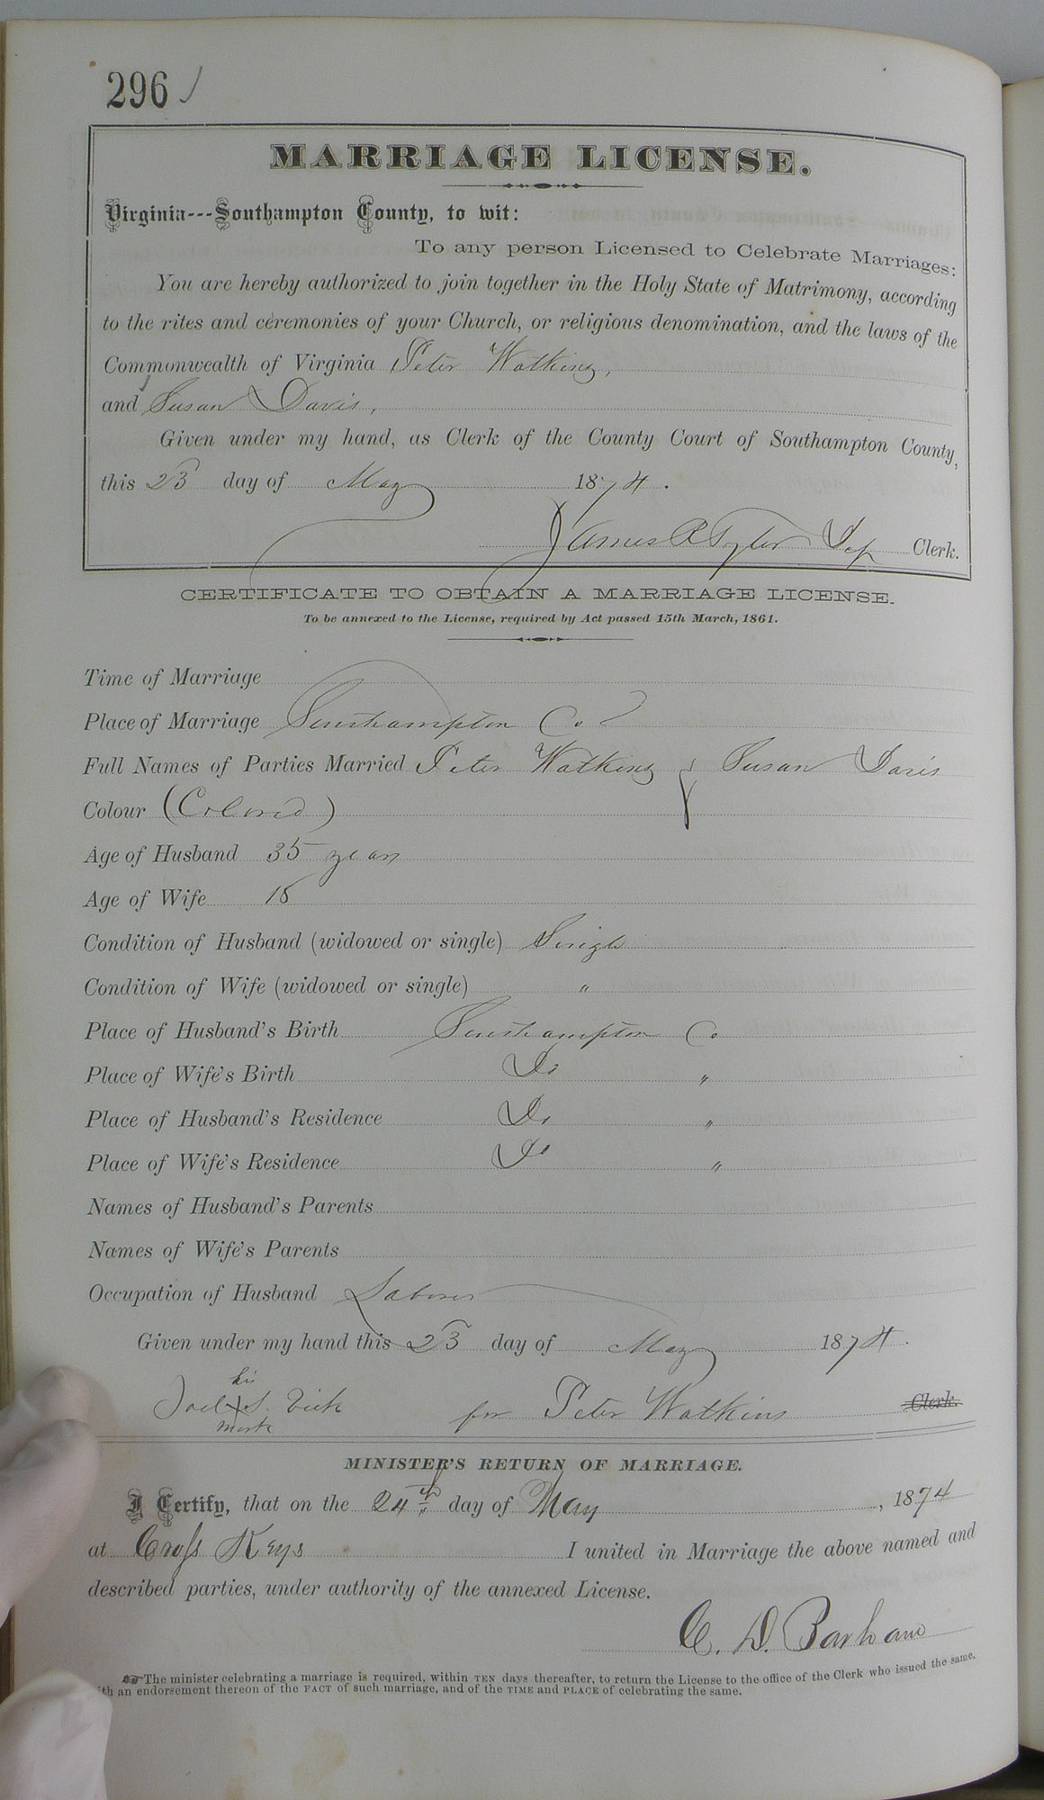 296
MARRIAGE LICENSE.
Virginia---Southampton County, to wit:
To any person Licensed to Celebrate Marriages:
You are hereby authorized to join together in the Holy State of Matrimony, according
to the rites and ceremonies of your Church, or religious denomination, and the laws of the
Commonwealth of Virginia Peter Watkins,
and Susan Davis,
Given under my hand, as Clerk of the County Court of Southampton County,
this 23 day of May 1874.
James R Tyler Dep Clerk.
CERTIFICATE TO OBTAIN A MARRIAGE LICENSE.
To be annexed to the License, required by Act passed 15th March, 1861.
Time of Marriage
Place of Marriage Southampton Co
Full Names of Parties Married Peter Watkins & Susan Davis
Colour (Colored)
Age of Husband 35 years
Age of Wife
Condition of Husband (widowed or single) Single
Condition of Wife (widowed or single) "
Place of Husband's Birth Southampton Co
Place of Wife's Birth Do "
Place of Husband's Residence Do "
Place of Wife's Residence Do "
Names of Husband's Parents
Names of Wife's Parents
Occupation of Husband Laborer
Given under my hand this 23 day of May 1874.
his
Joel X S. Dick for Peter Watkins Clerk.
mark
MINISTER'S RETURN OF MARRIAGE.
I Certify, that on the 24th day of May, 1874
at Cross Keys I united in Marriage the above named and
described parties, under authority of the annexed License.
C. D. Barham
The minister celebrating a marriage is required, within TEN days thereafter, to return the License to the office of the Clerk who issued the same,
th an endorsement thereon of the FACT of such marriage, and of the TIME and PLACE of celebrating the same.